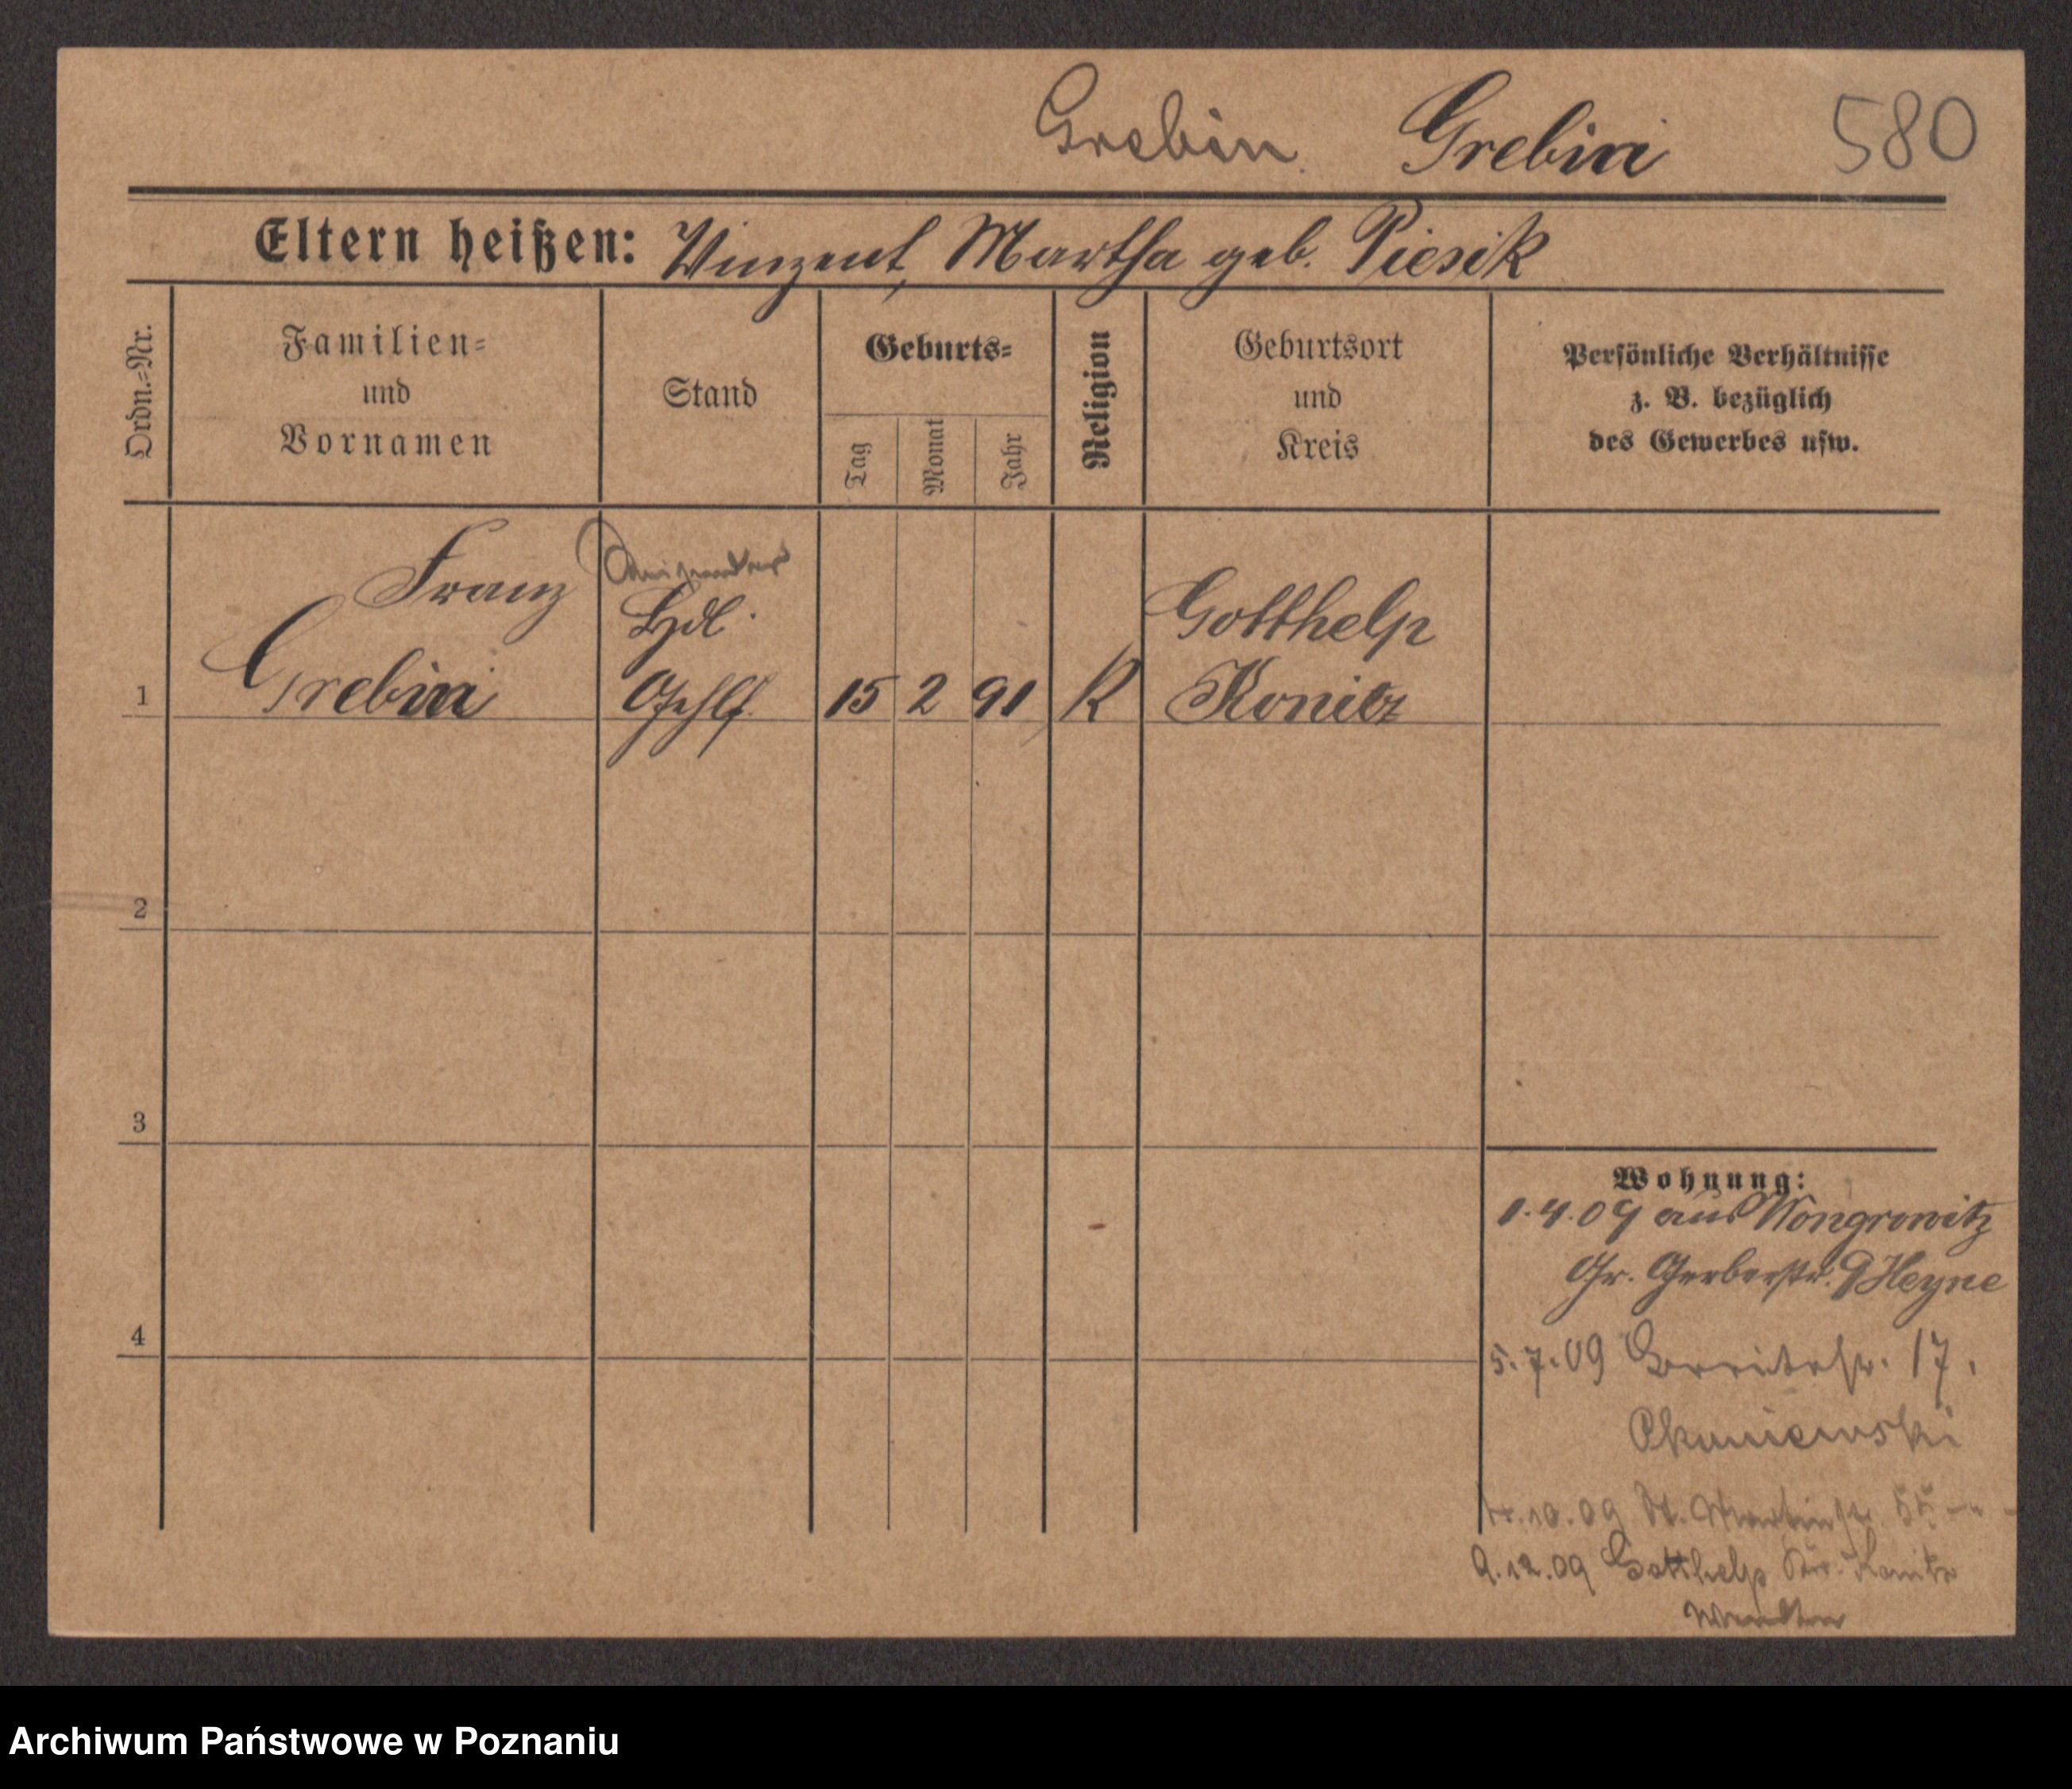 Grebin. Grebin 580
Eltern heißen: Vinzent, Martha geb. Piesik
Ordn.-Nr.
Familien-
und
Vornamen
Stand
Geburts-
Tag
Monat
Jahr
Religion
Geburtsort
und
Kreis
Persönliche Verhältnisse
z. B. bezüglich
des Gewerbes usw.
Franz
Hdl.
Gotthelp
1 Grebin Gehlf. 15 2 91 K Konitz
2
3
Wohnung:
1.4.09 aus Wongrowitz
Gr. Gerberstr. 9 Heyne
4
5.7.09 Breitestr. 17.
10.09 St. Martinstr.
9.12.09 Gotthelp Kr. Konitz
Archiwum Państwowe w Poznaniu